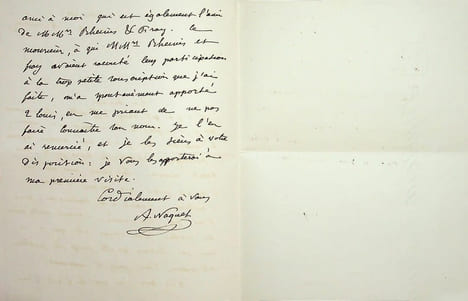 ami à moi qui est également l'ami
de M Mrs Rheims &
monsieur, à qui M Mrs Rheims et
avaient raconté leur participation
à la trop petite souscription que j'ai
faite, m'a spontanément apporté
2 louis, en me priant de ne pas
faire connaître son nom. Je l'en
ai remercié, et je les tiens à votre
disposition : je vous les apporterai à
ma première visite.
Cordialement à vous
A. Naquet